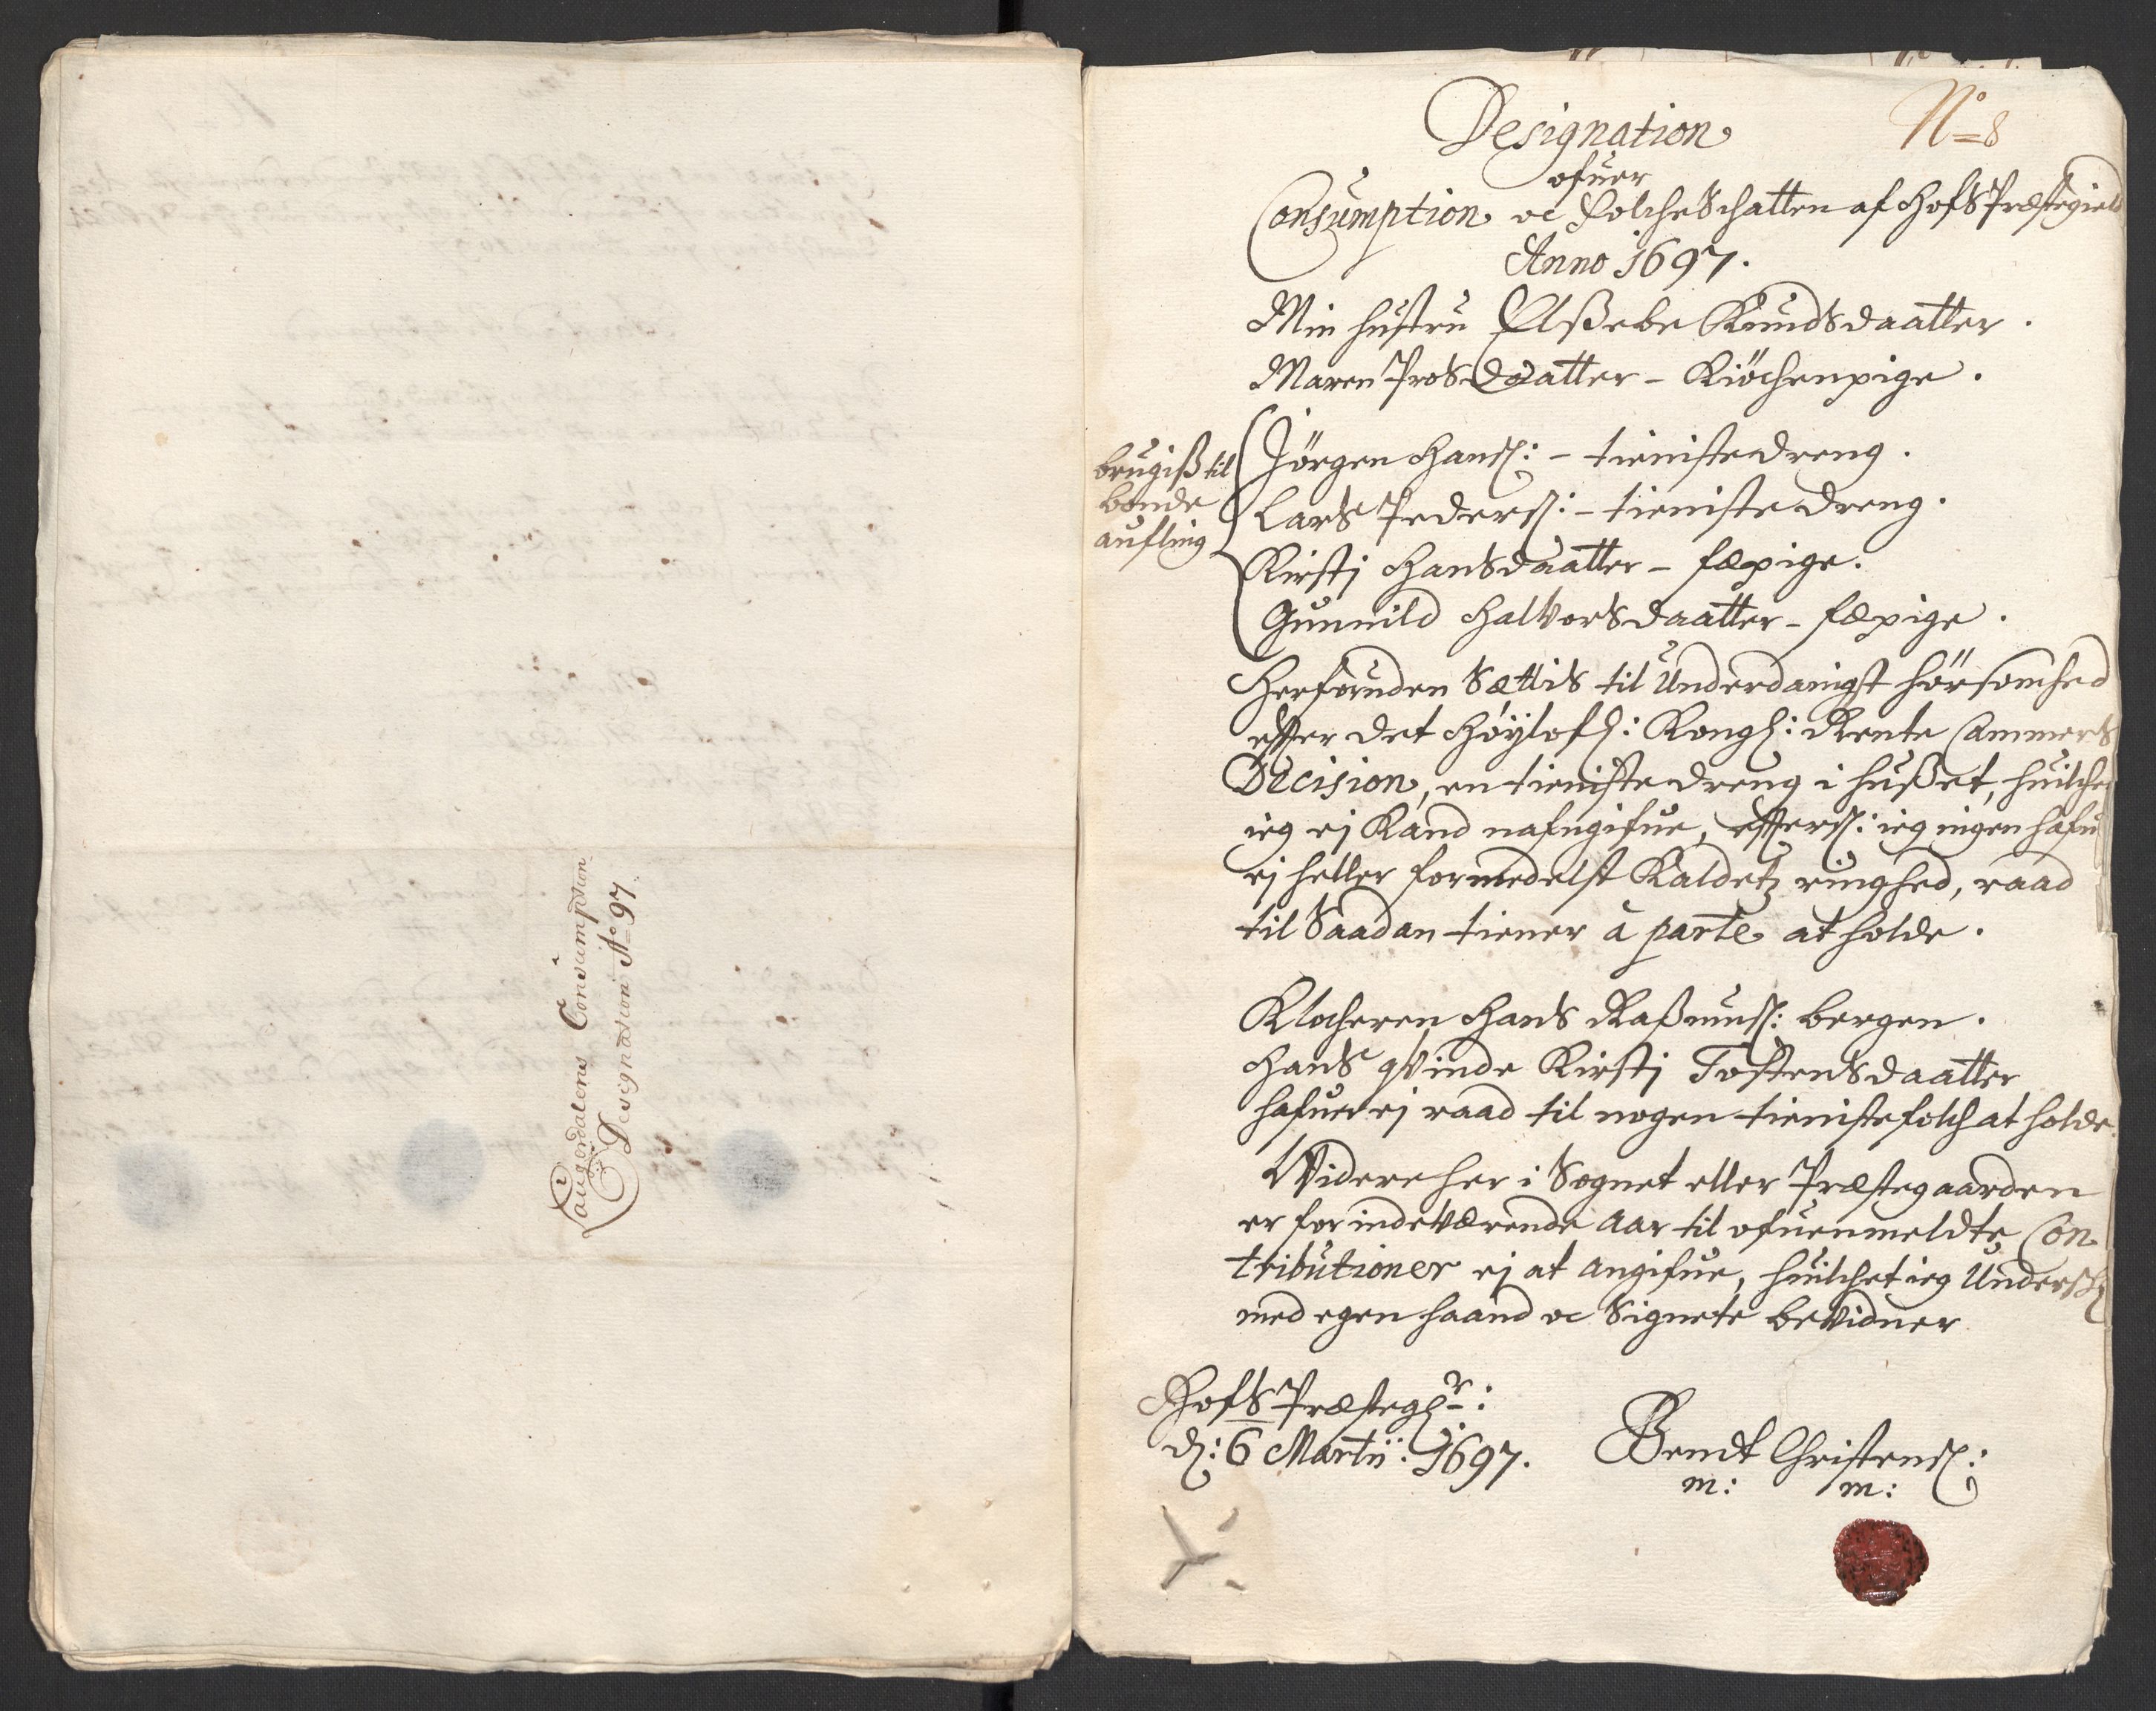 Laugerdalens Consumption
Designation Ao 97
No 8
Designation
ofuer
Consumption oc Folche Schatten af Hofs Præstegield
Anno 1697.
Min hustru Elßebe Knudsdaatter.
Maren Prosdaatter - Kiöchenpige.
brugiß til
bonde
aufling
Jörgen Hanss: - tienistedreng.
Lars Pederss: - tieniste dreng.
Kirstj Hansdaatter - fæpige.
Gunnild Halvorsdaatter - fæpige.
Herforuden Sættis til Underdanigst hörsomhed
effter det Höylofl: Kongl: Rente Cammers
Decision, en tienistedreng i hußet, huilchen
ieg ej Kand nafngifue, efftersl: ieg ingen hafu
ej heller formedelst Kaldetz ringhed, raad
til Saadan tiener à parte at holde.
Klocheren Hans Raßmuss: bergen.
Hans qvinde Kirstj Tostensdaatter
hafuer ej raad til nogen tienistefolch at holde.
Widere her i Sognet eller Præstegaarden
er for indeværende aar til ofuenmeldte Con
tributioner ej at angifue, huilchet ieg Undersch
med egen haand oc Signete bevidner
Hofs Præstegr:
d: 6 Martii: 1697.
Bendt Christenss:
m: m: